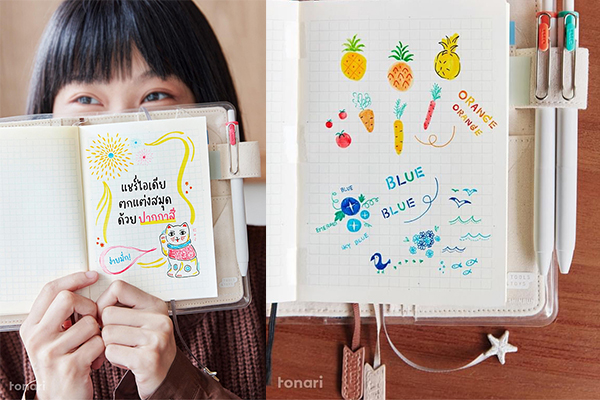 แชร์ไอเดีย
ตกแต่งสมุด
ด้วย ปากกาสี
ง่ายนิ๊ด!
tonari
ORANGE
ORANGE
BLUE
BLUE
BLUE
SKY BLUE
tonari